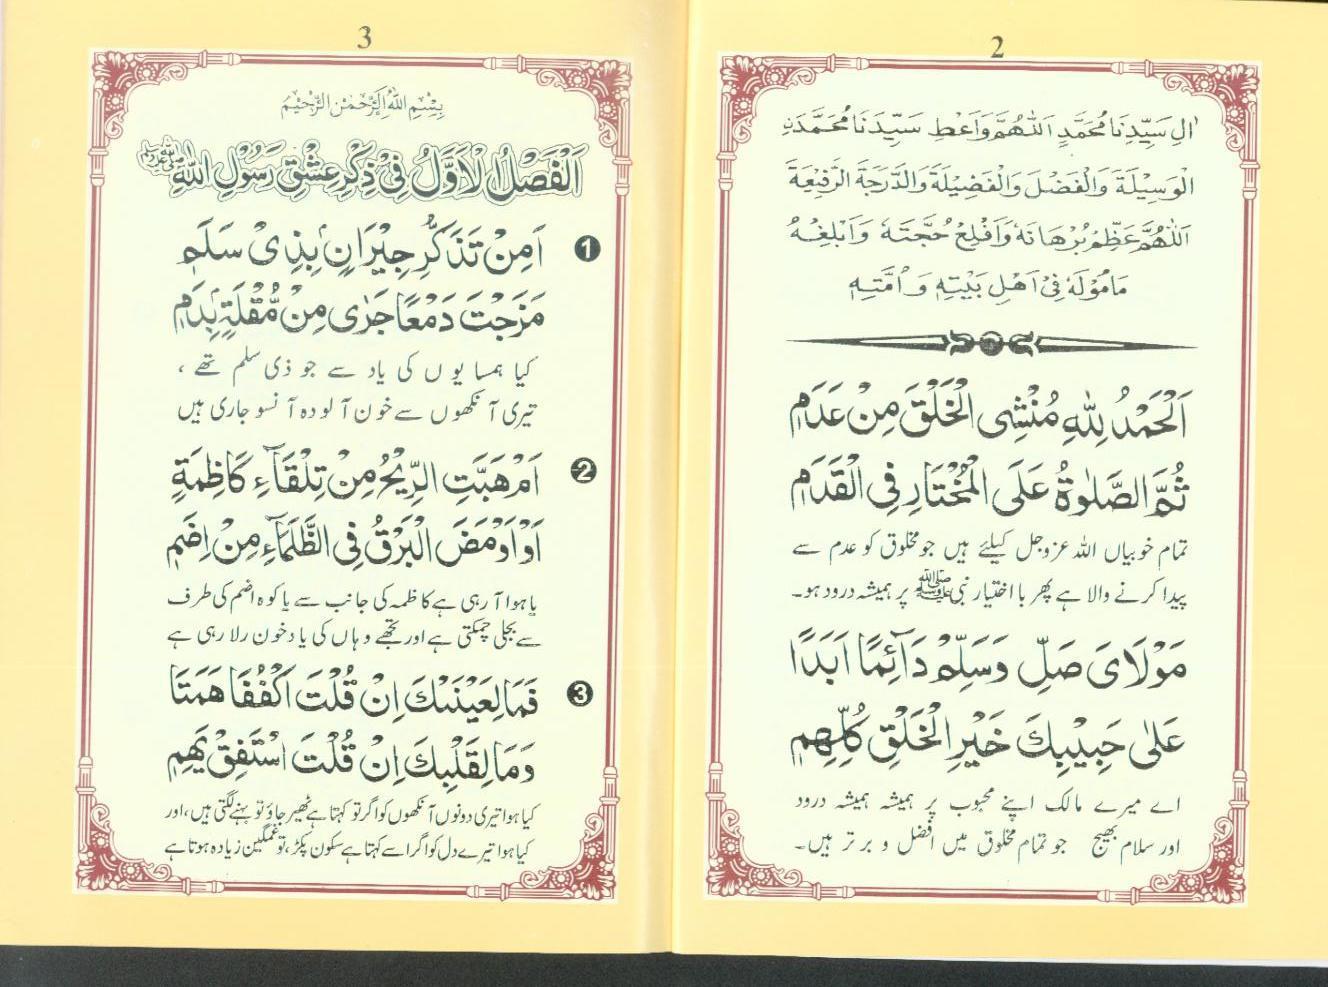 2
اٰلِ سَيِّدِنَا مُحَمَّدٍ اَللّٰهُمَّ وَاَعْطِ سَيِّدَنَا مُحَمَّدَنِ
الْوَسِيْلَةَ وَالْفَضْلَ وَالْفَضِيْلَةَ وَالدَّرَجَةَ الرَّفِيْعَةَ
اَللّٰهُمَّ عَظِّمْ بُرْهَانَهٗ وَاَفْلِحْ حُجَّتَهٗ وَاَبْلِغْهُ
مَأْمُوْلَهٗ فِيْ اَهْلِ بَيْتِهٖ وَاُمَّتِهٖ
اَلْحَمْدُ لِلّٰهِ مُنْشِى الْخَلْقِ مِنْ عَدَمٍ
ثُمَّ الصَّلٰوةُ عَلَى الْمُخْتَارِ فِي الْقَدَمِ
تمام خوبیاں اللہ عزوجل کیلئے ہیں جو مخلوق کو عدم سے
پیدا کرنے والا ہے پھر با اختیار نبی ﷺ پر ہمیشہ درود ہو۔
مَوْلَاىَ صَلِّ وَسَلِّمْ دَآئِمًا اَبَدًا
عَلٰى حَبِيْبِكَ خَيْرِ الْخَلْقِ كُلِّهِمِ
اے میرے مالک اپنے محبوب پر ہمیشہ ہمیشہ درود
اور سلام بھیج جو تمام مخلوق میں افضل و برتر ہیں۔
3
بِسْمِ اللّٰهِ الرَّحْمٰنِ الرَّحِيْمِ
اَلْفَصْلُ الْاَوَّلُ فِيْ ذِكْرِ عِشْقِ رَسُوْلِ اللّٰهِ ﷺ
1 اَمِنْ تَذَكُّرِ جِيْرَانٍ بِذِىْ سَلَمٖ
مَزَجْتَ دَمْعًا جَرٰى مِنْ مُّقْلَةٍ بِدَمٖ
کیا ہمسایوں کی یاد سے جو ذی سلم تھے ،
تیری آنکھوں سے خون آلودہ آنسو جاری ہیں
2 اَمْ هَبَّتِ الرِّيْحُ مِنْ تِلْقَآءِ كَاظِمَةٍ
اَوْ اَوْمَضَ الْبَرْقُ فِي الظَّلْمَآءِ مِنْ اِضَمٖ
یا ہوا آ رہی ہے کاظمہ کی جانب سے یا کوہ اضم کی طرف
سے بجلی چمکتی ہے اور تجھے وہاں کی یاد خون رلا رہی ہے
3 فَمَا لِعَيْنَيْكَ اِنْ قُلْتَ اكْفُفَا هَمَتَا
وَمَا لِقَلْبِكَ اِنْ قُلْتَ اسْتَفِقْ يَهِمٖ
کیا ہوا تیری دونوں آنکھوں کو اگر تو کہتا ہے ٹھہر جاؤ تو بہنے لگتی ہیں، اور
کیا ہوا تیرے دل کو اگر اسے کہتا ہے سکون پکڑ، تو غمگین زیادہ ہوتا ہے